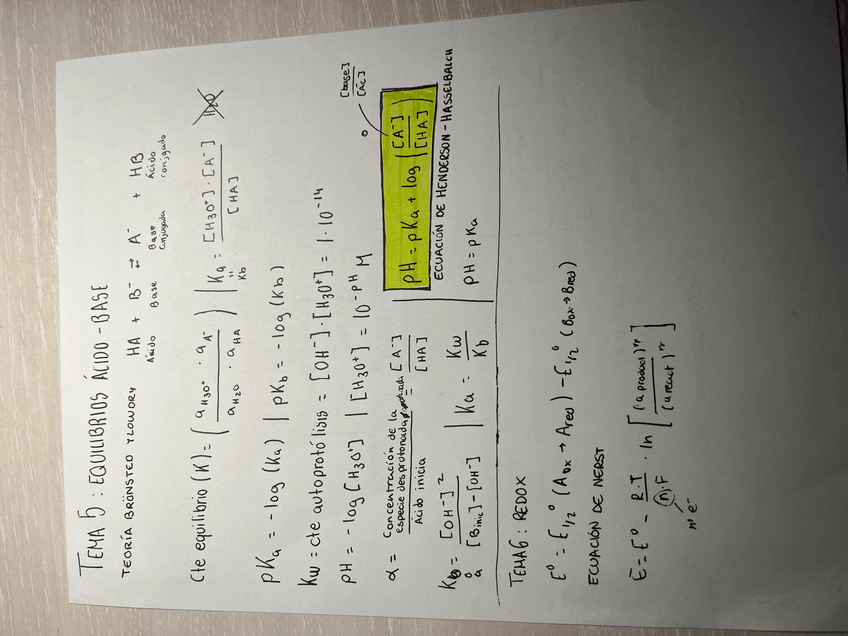 TEMA 5: EQUILIBRIOS ÁCIDO-BASE
TEORÍA BRÖNSTED Y LOWORY HA + B⁻ ⇄ A⁻ + HB
Ácido Base Base conjugada Ácido conjgado
Cte equilibrio (K) = ( a H3O⁺ · a A⁻ / a H2O · a HA ) | Ka = [H3O⁺]·[A⁻] / [HA]
" Kb
pKa = -log(Ka) | pKb = -log(Kb)
Kw = cte autoprotólisis = [OH⁻]·[H3O⁺] = 1·10⁻¹⁴
pH = -log[H3O⁺] | [H3O⁺] = 10⁻ᵖᴴ M
α = Concentración de la especie desprotonada / Ácido inicia = [A⁻] / [HA]
pH = pKa + log ( [A⁻] / [HA] )
o [base] / [Ác]
ECUACIÓN DE HENDERSON-HASSELBALCH
Kb o a = [OH⁻]² / [Binic]-[OH⁻] | Ka = Kw / Kb | pH = pKa
TEMA 6: REDOX
E⁰ = E1/2⁰ (Aox → Ared) - E1/2⁰ (Box → Bred)
ECUACIÓN DE NERST
E = E⁰ - R·T / n·F · ln [ (a product)ⁿᵖ / (a react)ⁿʳ ]
nº e⁻